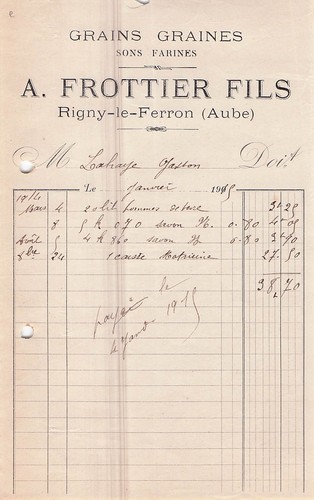 GRAINS GRAINES
SONS FARINES
A. FROTTIER FILS
Rigny-le-Ferron (Aube)
M Lahaye Gaston Doit
Le Janvier 1915
1914
Mars 4 20 lit pommes de terre 3 25
8 5 k 070 savon % 0.80 4 05
Août 5 4 k 860 savon % 0.80 3 90
8bre 24 1 caisse 27 50
38 70
payé le
4 Janv 1915